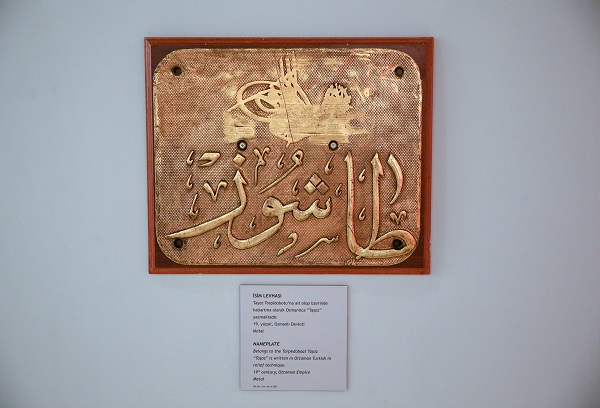 طاشوز
İSİM LEVHASI
Taşoz Torpidobotu'na ait olup üzerinde
kabartma olarak Osmanlıca "Taşoz"
yazmaktadır.
19. yüzyıl, Osmanlı Devleti
Metal
NAMEPLATE
Belongs to the Torpedoboat Taşoz
"Taşoz" is written in Ottoman Turkish in
relief technique.
19th century, Ottoman Empire
Metal